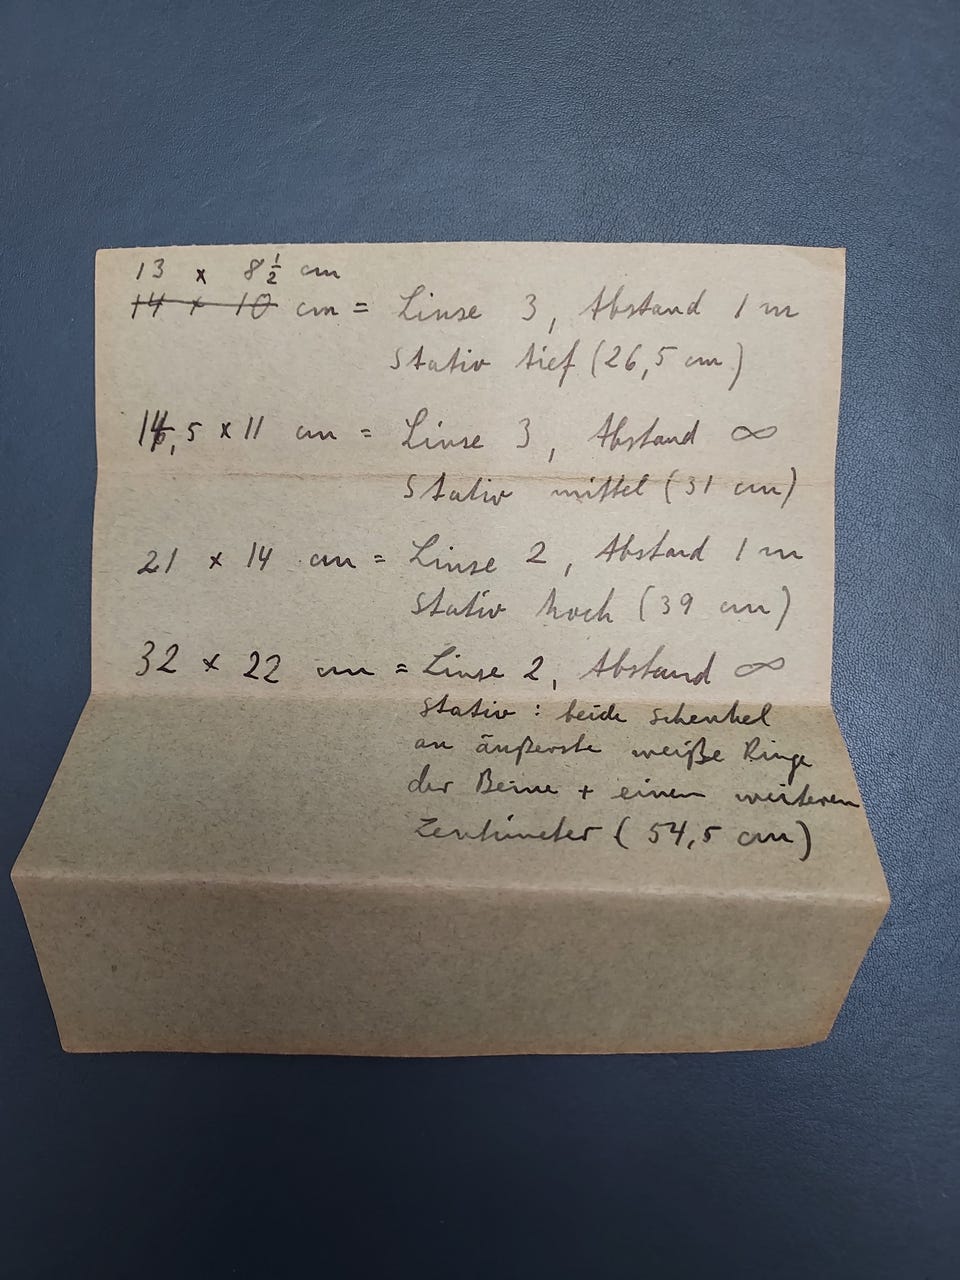 13 x 8½ cm
14 x 10 cm = Linse 3, Abstand 1 m
Stativ tief (26,5 cm)
,5 x 11 cm = Linse 3, Abstand ∞
Stativ mittel (31 cm)
21 x 14 cm = Linse 2, Abstand 1 m
Stativ hoch (39 cm)
32 x 22 cm = Linse 2, Abstand ∞
Stativ : beide Schenkel
an äußerste weiße Ringe
der Beine + einen weiteren
Zentimeter (54,5 cm)